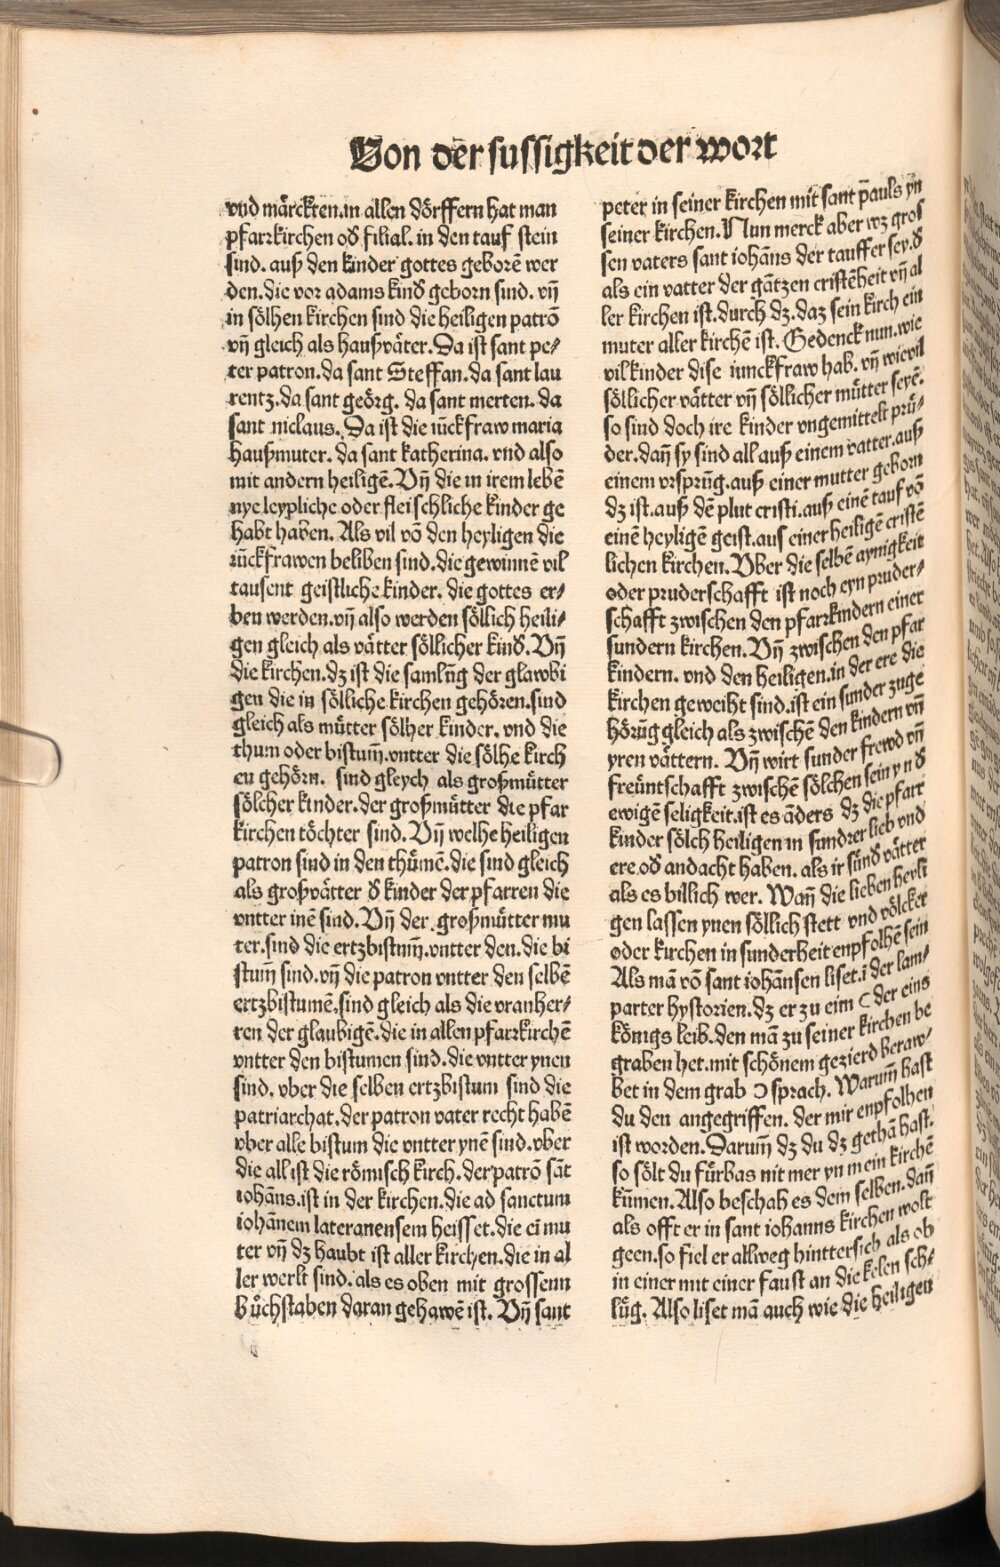 Von der sussigkeit der wort
vnd märckten. in allen dörffern hat man
pfarrkirchen od̕ filial. in den tauf stein
sind. auß den kinder gottes geborē wer
den. die vor adams kind̕ geborn sind. vñ
in sölhen kirchen sind die heiligen patrō
vñ gleich als haußväter. Da ist sant pe⸗
ter patron. da sant Steffan. da sant lau
rentz. da sant geörg. da sant merten. da
sant niclaus. Da ist die iūckfraw maria
haußmuter. da sant katherina. vnd also
mit andern heiligē. Vñ die in irem lebē
nye leypliche oder fleischliche kinder ge
habt haben. Als vil vō den heyligen die
iūckfrawen beliben sind. die gewinnē vil
tausent geistliche kinder. die gottes er⸗
ben werden. vñ also werden söllich heili⸗
gen gleich als vätter söllicher kind̕. Vñ
die kirchen. dz ist die samlūg der glawbi
gen die in sölliche kirchen gehören. sind
gleich als mütter sölher kinder. vnd die
thum oder bistum̄. vntter die sölhe kirch
en gehörn. sind gleych als großmütter
sölcher kinder. der großmütter die pfar
kirchen töchter sind. Vñ welhe heiligen
patron sind in den thümē. die sind gleich
als großvätter d̕ kinder der pfarren die
vntter inē sind. Vñ der großmütter mu
ter. sind die ertzbistum̄. vntter den. die bi
stum̄ sind. vñ die patron vntter den selbē
ertzbistumē, sind gleich als die vranher⸗
ren der glaubigē. die in allen pfarrkirchē
vntter den bistumen sind. die vntter ynen
sind. vber die selben ertzbistum sind die
patriarchat. der patron vater recht habē
vber alle bistum die vntter ynē sind. vber
die all ist die römisch kirch. der patrō sāt
iohāns. ist in der kirchen. die ad sanctum
iohānem lateranensem heisset. die ei mu
ter vñ dz haubt ist aller kirchen. die in al
ler werlt sind. als es oben mit grossenn
Büchstaben daran gehawē ist. Vñ sant
peter in seiner kirchen mit sant pauls yn
seiner kirchen. Nun merck aber wz gros
sen vaters sant iohāns der tauffer sey. d̕
als ein vatter der gātzen cristēheit vñ al
ler kirchen ist. durch dz. daz sein kirch ein
muter aller kirchē ist. Gedenck nun. wie
vil kinder dise iunckfraw hab. vñ wievil
söllicher vätter vñ söllicher mütter seyē.
so sind doch ire kinder vngemittelt prü⸗
der. dañ sy sind all auß einem vatter. auß
einem vrsprūg. auß einer mutter geborn
dz ist. auß dē plut cristi. auß einē tauf vō
einē heyligē geist. aus einer heiligē cristē
lichen kirchen. Vber die selbē aynigkeit
oder pruderschafft ist noch eyn pruder⸗
schafft zwischen den pfarrkindern einer
sundern kirchen. Vñ zwischen den pfar
kindern. vnd den heiligen. in der ere die
kirchen geweiht sind. ist ein sunder zuge
hörūg gleich als zwischē den kindern vñ
yren vättern. Vñ wirt sunder frewd vñ
freüntschafft zwischē sölchen sein yn d̕
ewigē seligkeit. ist es āders dz die pfarr
kinder sölch heiligen in sundrer lieb vnd
ere. od̕ andacht haben. als ir sūnd̕ vätter
als es billich wer. Wañ die lieben heyli
gen lassen ynen söllich stett vnd völcker
oder kirchen in sunderheit enpfolhē sein
Als mā vō sant iohānsen liset. ī der lam⸗
parter hystorien. dz er zu eim ( der eins
königs leib. den mā zu seiner kirchen be
graben het. mit schönem gezierd beraw⸗
bet in dem grab ) sprach. Warum̄ hast
du den angegriffen. der mir enpfolhen
ist worden. Darum̄ dz du dz gethā hast.
so sölt du fürbas nit mer yn mein kirchē
kūmen. Also beschah es dem selben. dañ
als offt er in sant iohanns kirchen wolt
geen. so fiel er allweg hinttersich als ob
in einer mit einer faust an die kelen sch⸗
lüg. Also liset mā auch wie die heiligen